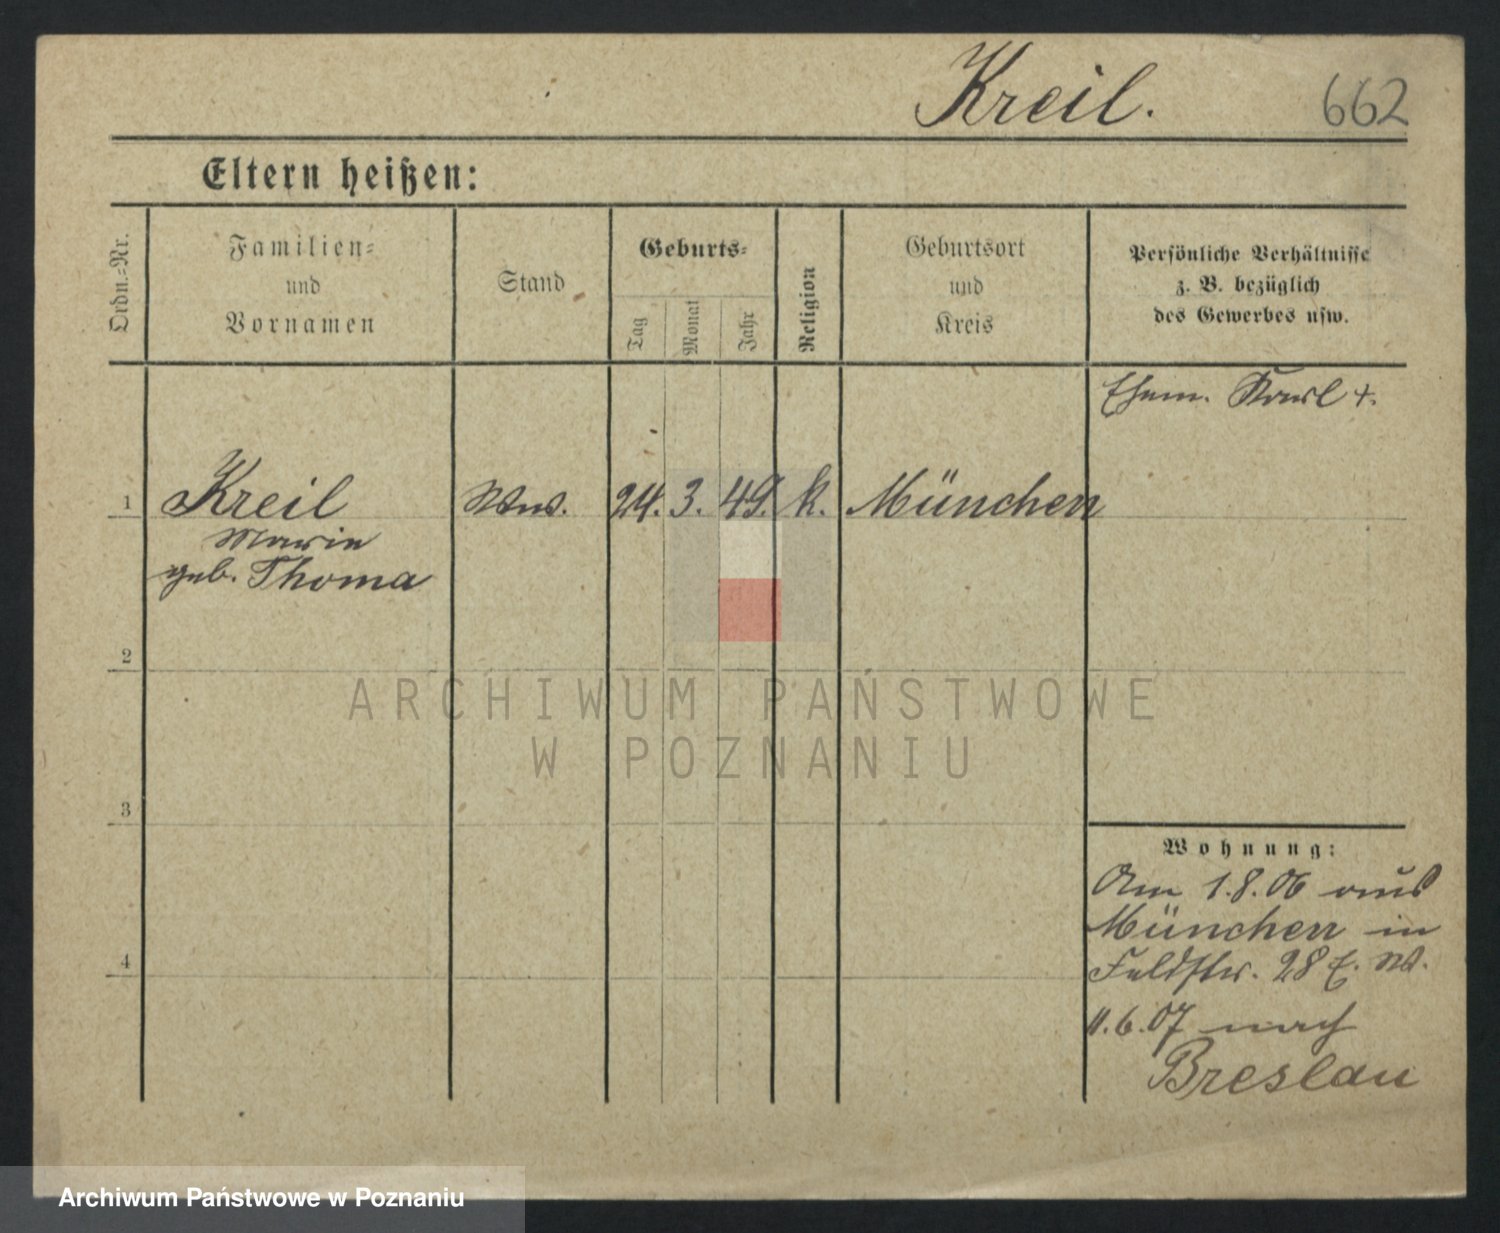 Kreil.
662
Eltern heißen:
Ordn.=Nr.
Familien=
und
Vornamen
Stand
Geburts=
Tag
Monat
Jahr
Religion
Geburtsort
und
Kreis
Persönliche Verhältnisse
z. B. bezüglich
des Gewerbes usw.
Ehem. Karl +.
1
Kreil
Wwe.
24.
3.
49.
k.
München
Marie
geb. Thoma
2
ARCHIWUM PAŃSTWOWE
W POZNANIU
3
4
Wohnung:
Am 1.8.06 aus
München in
Feldstr. 28 E. W.
11.6.07 nach
Breslau
Archiwum Państwowe w Poznaniu